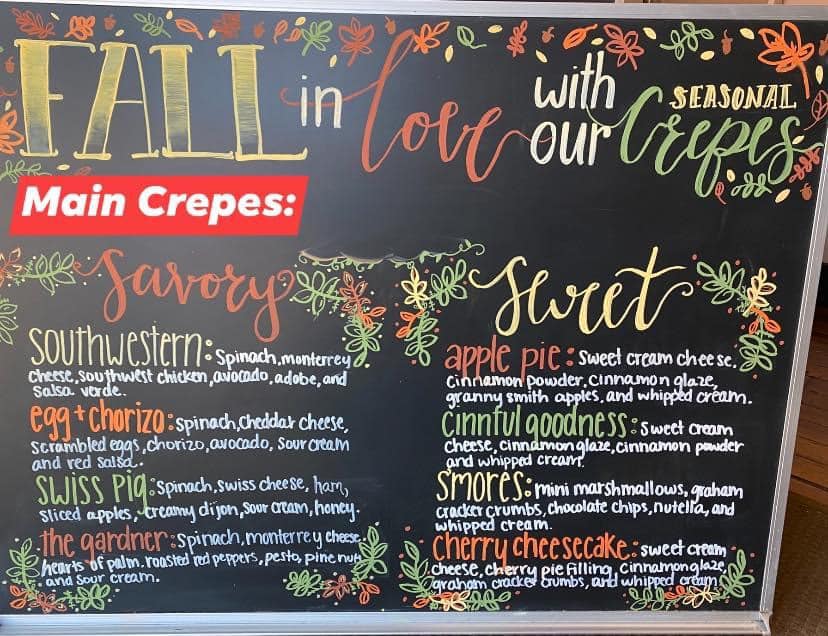 FALL in love with our SEASONAL Crepes
Main Crepes:
Savory
Southwestern: Spinach, monterrey
cheese, southwest chicken, avocado, adobe, and
salsa verde.
egg + chorizo: spinach, cheddar cheese,
scrambled eggs, chorizo, avocado, sour cream
and red salsa.
Swiss Pig: Spinach, swiss cheese, ham,
sliced apples, creamy dijon, sour cream, honey.
the gardner: spinach, monterrey cheese,
hearts of palm, roasted red peppers, pesto, pine nuts
and sour cream.
Sweet
apple pie: sweet cream cheese.
cinnamon powder, cinnamon glaze,
granny smith apples, and whipped cream.
cinnful goodness: sweet cream
cheese, cinnamon glaze, cinnamon powder
and whipped cream.
S'mores: mini marshmallows, graham
cracker crumbs, chocolate chips, nutella, and
whipped cream.
Cherry cheesecake: sweet cream
cheese, cherry pie filling, cinnamon glaze,
graham cracker crumbs, and whipped cream